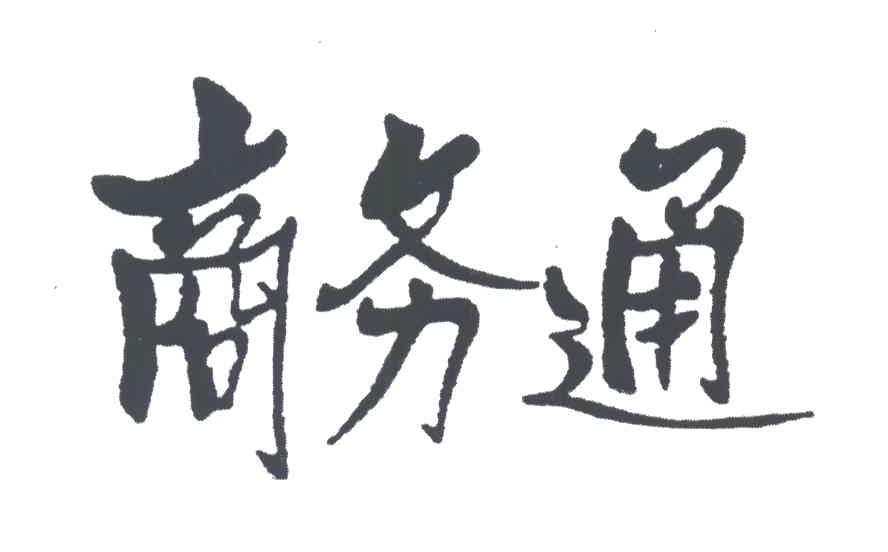 商务通